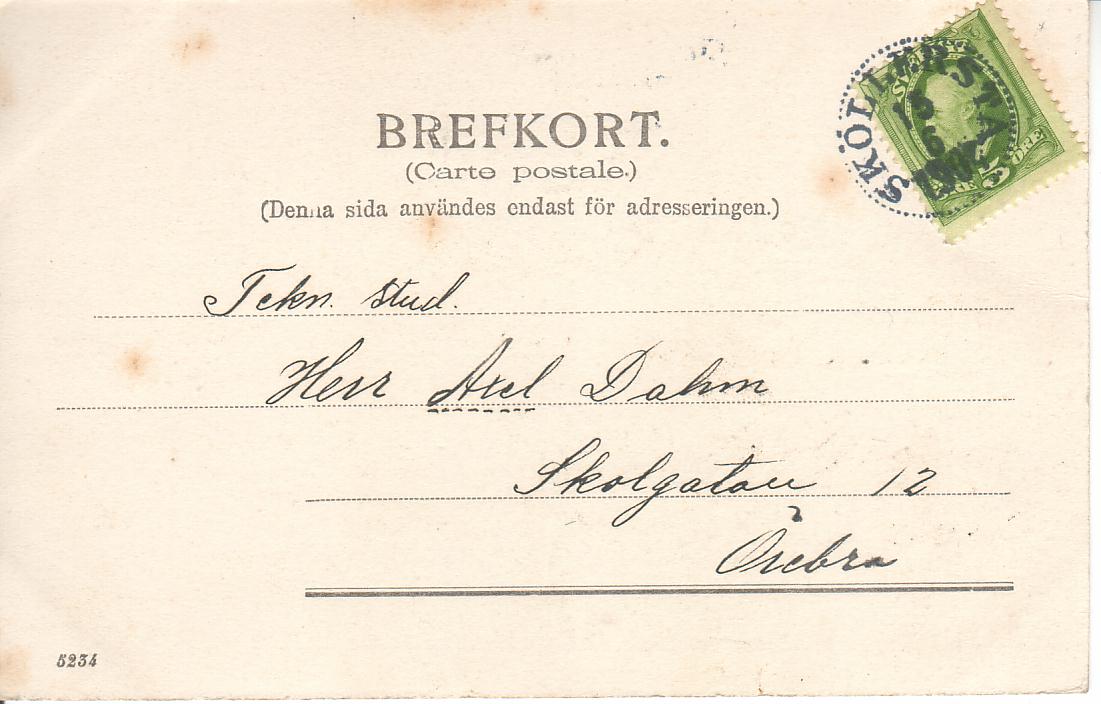 BREFKORT.
(Carte postale.)
(Denna sida användes endast för adresseringen.)
SKÖLLERSTA
15
6
SVERIGE
5 ÖRE
Tekn. stud.
Herr Axel Dahm
Skolgatan 12
Örebro
5234